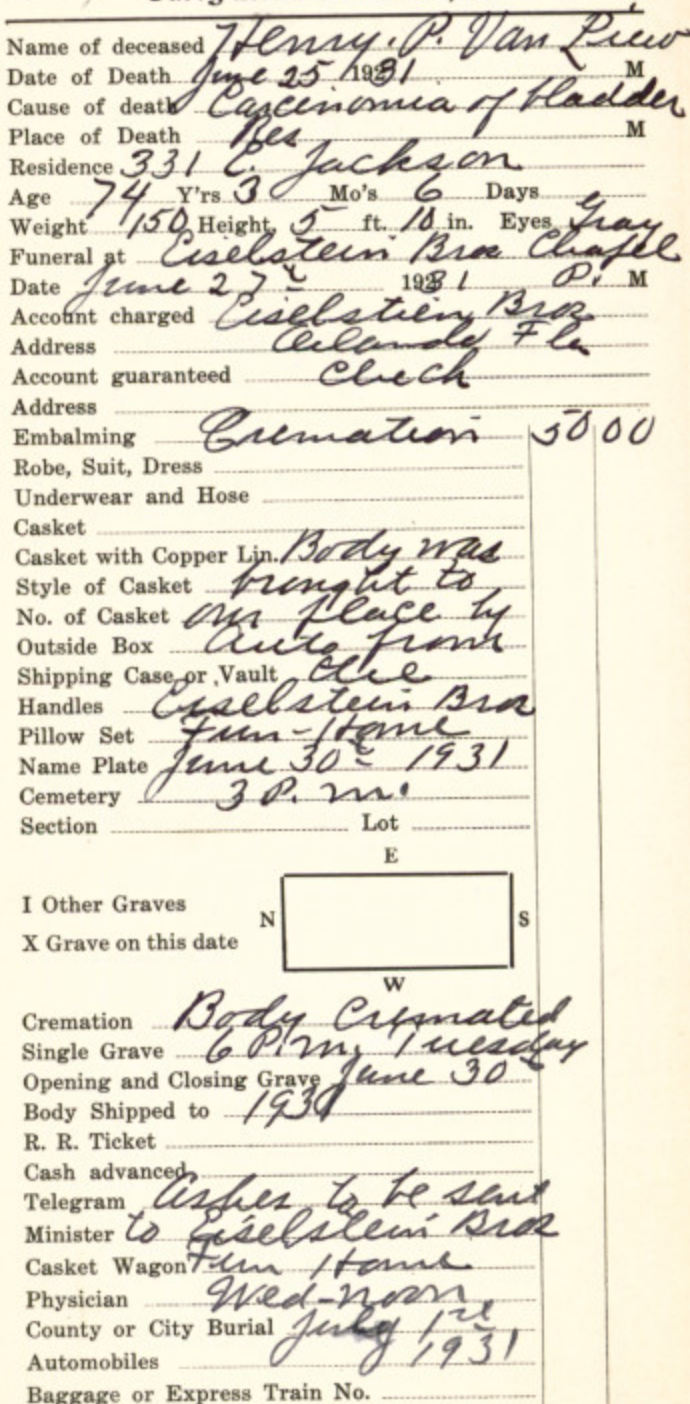 Name of deceased Henry. P. Van Liew
Date of Death June 25 1931 M
Cause of death Carcinomia of bladder
Place of Death Res M
Residence 331 E. Jackson
Age 74 Y'rs 3 Mo's 6 Days
Weight 150 Height, 5 ft. 10 in. Eyes Gray
Funeral at Eiselstein Bros Chapel
Date June 27th 1931 P. M
Account charged Eiselstien Bros
Address Orlando Fla
Account guaranteed Check
Address
Embalming Cremation 50 00
Robe, Suit, Dress
Underwear and Hose
Casket
Casket with Copper Lin. Body was
Style of Casket brought to
No. of Casket our place by
Outside Box Auto from
Shipping Case or Vault the
Handles Eiselstein Bros
Pillow Set Fun-Home
Name Plate June 30th 1931
Cemetery 3 P. m.
Section Lot
E
I Other Graves
N S
X Grave on this date
W
Cremation Body Cremated
Single Grave 6 P. m. Tuesday
Opening and Closing Grave June 30th
Body Shipped to 1931
R. R. Ticket
Cash advanced
Telegram Ashes to be sent
Minister to Eiselstein Bros
Casket Wagon Fun Home
Physician Wed-noon
County or City Burial July 1st
Automobiles 1931
Baggage or Express Train No.